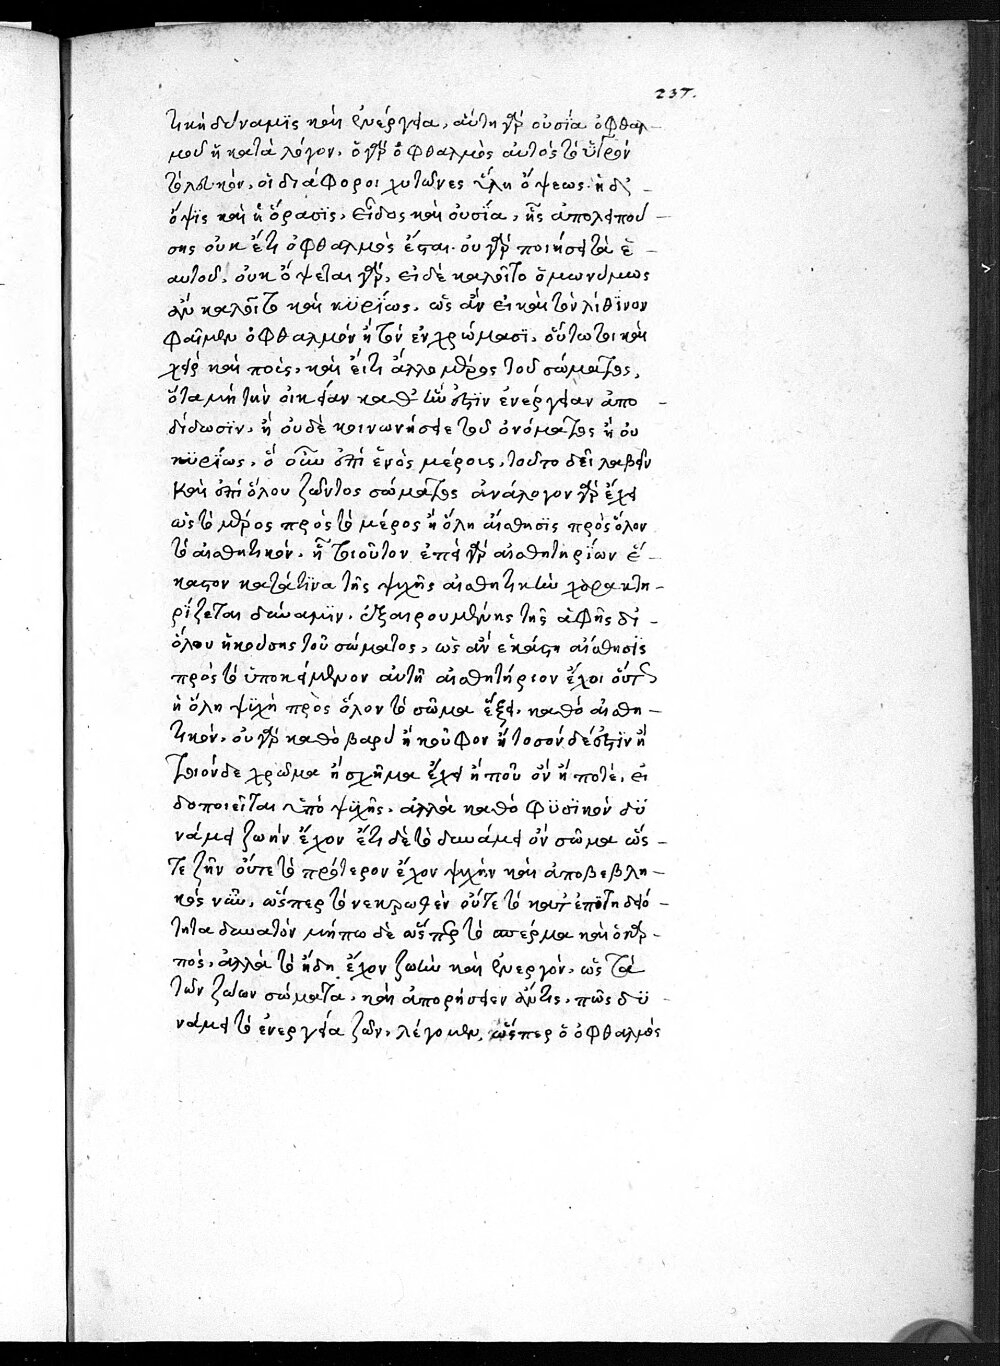 237.
τικὴ δύναμϊς καὶ ἐνέργεια, αὕτη γὰρ οὐσία ὀφθαλ-
μοῦ ἡ κατὰ λόγον. ὁ γὰρ ὀφθαλμὸς αὐτὸς τὸ ὑγρὸν
οἱ διάφοροι χιτῶνες ὕλη ὄψεως. ἡ δὲ
ὄψϊς καὶ ἡ ὅρασϊς, εἶδος καὶ οὐσία, ἧς ἀπολειπού-
σης οὐκ ἔτι ὀφθαλμὸς ἔσται. οὐ γὰρ ποιήσει τὰ ἑ-
αυτοῦ, οὐκ ὄψεται γάρ, εἰ δὲ καλοῖτο ὁμωνύμως
ἂν καλοῖτο καὶ κϋρίως, ὡς ἂν εἰ καὶ τὸν λίθινον
φαῖμεν ὀφθαλμὸν ἢ τὸν ἐν χρώμασϊ, οὕτω τοι καὶ
χεὶρ καὶ ποὺς, καὶ εἴ τι ἄλλο μέρος τοῦ σώματος,
ὅτα μὴ τὴν οἰκείαν καθ' ἥν ἐστϊν ἐνέργειαν ἀπο-
δίδωσϊν, ἢ οὐδὲ κοινωνήσει τοῦ ὀνόματος ἢ οὐ
κϋρίως, ὃ οὖν ἐπὶ ἑνὸς μέρους, τοῦτο δεῖ λαβεῖν
καὶ ἐπὶ ὅλου ζῶντος σώματος ἀνάλογον γὰρ ἔχει
ὡς τὸ μέρος πρὸς τὸ μέρος ἡ ὅλη αἴσθησϊς πρὸς ὅλον
τὸ αἰσθητικόν. ᾗ τοιοῦτον ἐπεὶ γὰρ αἰσθητηρίων ἕ-
καστον κατά τϊνα τῆς ψυχῆς αἰσθητικὴν χαρακτη-
ρίζεται δύναμϊν. ἐξαιρουμένης τῆς ἁφῆς δι'
ὅλου ἡκούσης τοῦ σώματος, ὡς ἂν ἑκάστη αἴσθησϊς
πρὸς τὸ ὑποκείμενον αὐτῇ αἰσθητήριον ἔχοι οὕτως
ἡ ὅλη ψϋχὴ πρὸς ὅλον τὸ σῶμα ἕξει. καθὸ αἰσθη-
τικόν. οὐ γὰρ καθὸ βαρὺ ἢ κοῦφον ἢ τοσόνδε ἐστϊν ἢ
τοιόνδε χρῶμα ἢ σχῆμα ἔχει ἢ ποῦ ὂν ἢ ποτέ, εἰ-
δοποιεῖται ὑπὸ ψϋχῆς. ἀλλὰ καθὸ φϋσϊκὸν δϋ-
νάμει ζωὴν ἔχον ἔτι δὲ τὸ δυνάμει ὂν σῶμα ὥς-
τε ζῆν οὔτε τὸ πρότερον ἔχον ψυχὴν καὶ ἀποβεβλη-
κὸς νῦν, ὥσπερ τὸ νεκρωθὲν οὔτε τὸ κατ' ἐπιτηδειό-
τητα δυνατόν μήπω δὲ ὥσπερ τὸ σπέρμα καὶ ὁ καρ-
πός. ἀλλὰ τὸ ἤδη ἔχον ζωὴν καὶ ἐνεργόν. ὡς τὰ
τῶν ζώων σώματα. καὶ ἀπορήσειεν ἄν τις. πῶς δϋ-
νάμει τὸ ἐνεργείᾳ ζῶν. λέγομεν, ὥσπερ ὁ ὀφθαλμὸς